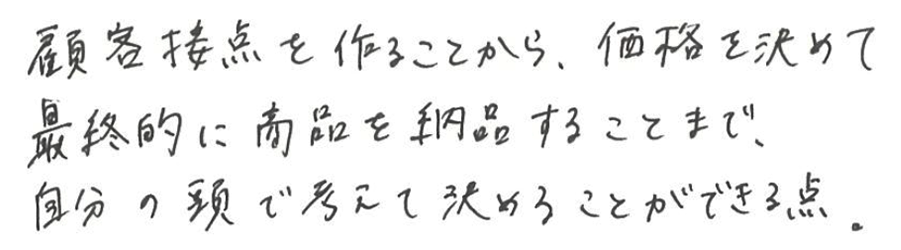 顧客接点を作ることから、価格を決めて
最終的に商品を納品することまで、
自分の頭で考えて決めることができる点。